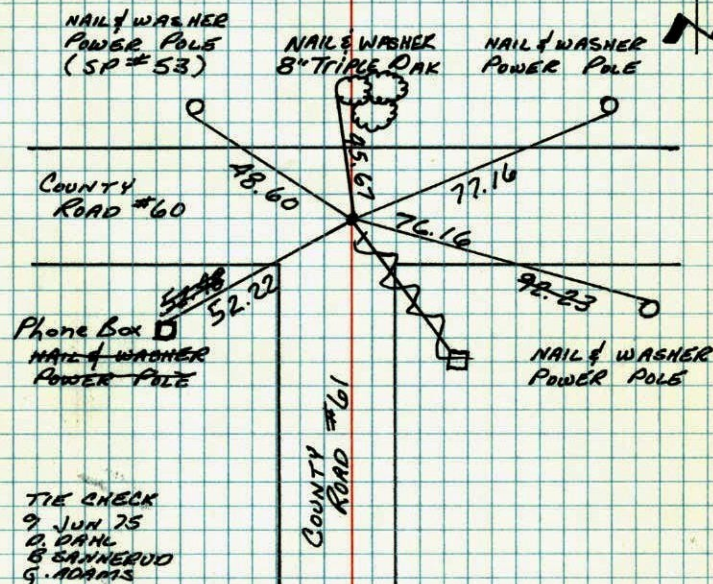 NAIL & WASHER
POWER POLE
(SP #53)
NAIL & WASHER
8" TRIPLE OAK
NAIL & WASHER
POWER POLE
48.60
45.67
77.16
COUNTY
ROAD #60
76.16
92.23
52.22
Phone Box
NAIL & WASHER
POWER POLE
NAIL & WASHER
POWER POLE
COUNTY
ROAD #61
TIE CHECK
9 JUN 75
D. DAHL
B SANNERUD
G. ADAMS